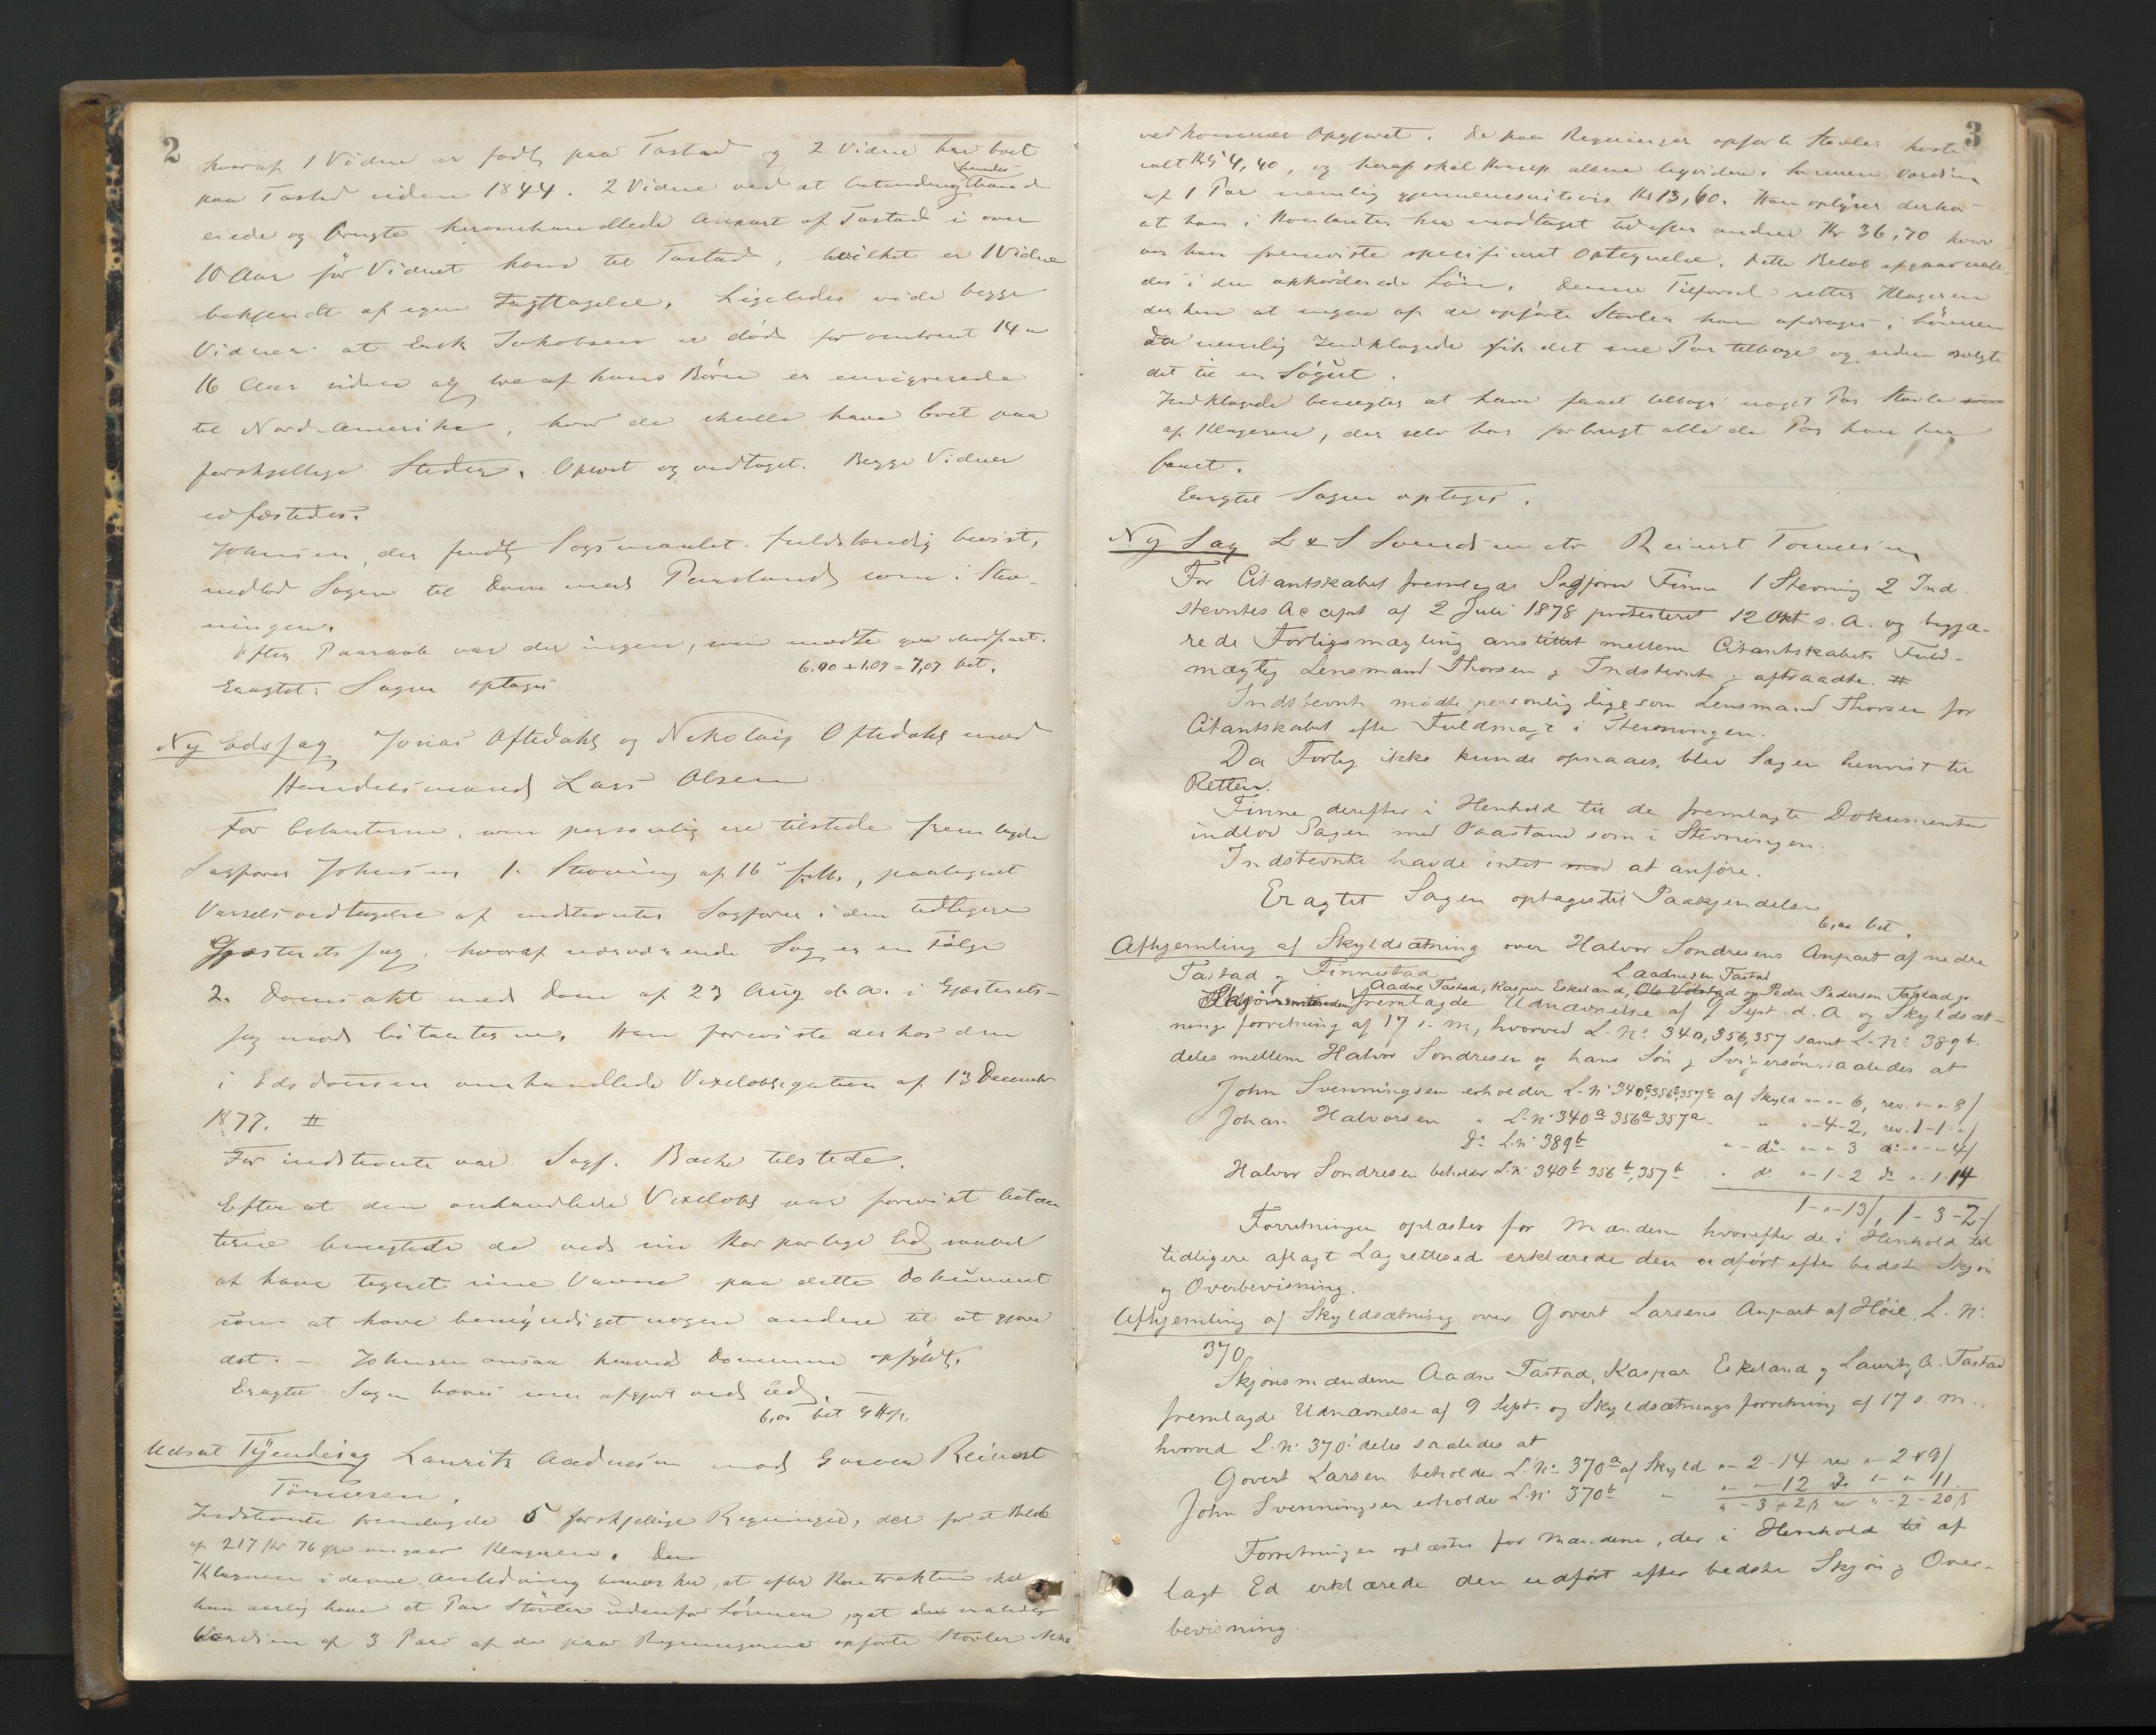 2
hvoraf 1 Vidne er født paa Tastad og 2 Vidne har boet
paa Tastad siden 1844. 2 Vidne ved at hendes
eiede og brugte heromhandlede Anpart af Tastad i over
10 Aar før Vidnet kom til Tastad, hvilket er 1 Vidne
bekjendt af egen Iagttagelse. Ligeledes vide begge
Vidner at Erik Jakobsen er død for omtrent 14 a
16 Aar siden og tre af hans Børn er emigrerede
til Nord-Amerika, hvor de skulle have boet paa
forskjellige Steder. Oplæst og vedtaget. Begge Vidner
edfæstedes.
Johnsen, der fandt Søgsmaalet fuldstændig bevist,
indlod Sagen til Dom med Paastand som i Stev-
ningen.
Efter Paaraab var der ingen, som mødte qva Modpart.
6.00 + 1.07 = 7,07 bet.
Eragtet: Sagen optages
Ny Edssag Jonas Oftedahl og Nikolai Oftedahl mod
Handelsmand Lars Olsen
For Citanterne, som personlig ere tilstede fremlagde
Sagfører Johnsen 1. Stevning af 16 f.M., paategnet
Varselsvedtagelse af indstevntes Sagfører i den tidligere
Gjæsteretssag, hvoraf nærværende Sag er en Følge
2. Domsakt med Dom af 23 Aug d.A. i Gjæsterets-
sag mod Citanterne. Han foreviste derhos den
i Edsdommen omhandlede Vexelobligation af 13 December
1877. #
For indstevnte var Sagf. Bache tilstede.
Efter at den omhandlede Vexelobl var forevist Citan
terne benegtede de ved sin korporlige Ed saavel
at have tegnet sine Navne paa dette Dokument
som at have bemyndiget nogen anden til at gjøre
det. – Johnsen ansaa hermed Dommen opfyldt.
Eragtet: Sagen hæves som afgjort ved Ed.
6,00 bet
Udsat Tyendesag Lauritz Aadnesen mod Reinert
Tønnesen.
Indstevnte fremlagde 5 forskjellige Regninger, der for et Beløb
af 217 Kr 76 Øre angaar Klageren. Den
Klageren i denne Anledning bemærker, at efter Kontrakten skal
han aarlig have et Par Støvler udenfor Lønnen, at saaledes
Værdien af 3 Par af de paa Regningerne opførte Støvler ikke
3
vedkommer Opgjøret. De paa Regningen opførte Støvler koste
ialt Kr 54,40, og heraf skal altsaa ligeledes Værdien
af 1 Par nemlig gjennemsnitsvis Kr 13,60. Han oplyser derhos
at han i Kontanter har modtaget Kr 36,70 hvor
over han fremviste specificeret Optegnelse. Dette Beløb afgaar saale-
des i den akkorderede Løn. Denne Tilførsel retter Klageren
derhen at ingen af de opførte Støvler kan afdrages i Lønnen
da nemlig Indklagede fik det ene Par tilbage og siden solgte
det til en
Indklagede benegter at have faaet tilbage noget Par Støvle
af Klageren, der selv har forbrugt alle de Par han har
faaet.
Eragtet Sagen optages.
Ny Sag L & S Svendsen ctr Reinert Tønnesen
For Citantskabet fremlagde Sagfører Finne 1 Stevning 2 Ind
stevntes Accept af 2 Juli 1878 protesteret 12 Okt s.A. og begjæ-
rede Forligsmægling anstillet mellem Citantskabets Fuld-
mægtig Lensmand Thorsen og Indstevnte og aftraadte. #
Indstevnte mødte personlig ligesom Lensmand Thorsen for
Citantskabet efter Fuldmagt i Stevningen.
Da Forlig ikke kunde opnaaes, blev Sagen henvist til
Retten.
Finne derefter i Henhold til de fremlagte Dokumenter
indlod Sagen med Paastand som i Stevningen.
Indstevnte havde intet mod at anføre.
Eragtet Sagen optages til Paakjendelse
6,00 bet.
Afhjemling af Skyldsætning over Halvor Sondresens Anpart af nedre
Tastad og Finnestad
L. Aadnesen Tastad
Aadne Tastad, Kaspar Eskeland, Ole Vdstad og Peder Pedersen Tastad
Skjønsmænden fremlagde Udnævnelse af 9 Sept. d.A og Skyldsæt-
ning forretning af 17 s.m, hvorved L-No 340, 356, 357 samt L-No 389b.
deles mellem Halvor Sondresen og hans Søn og Svigersøn saaledes at
John Svenningsen erholder L-No 340c 356c 357c af Skyld " - " - 6, rev. " - " - 8/
Johan Halvorsen " L-No 340a 356a 357a " " - 4 - 2, rev. 1 - 1 - "/
Do L.No 389b " - do - " - " 3 do - " - " - 4/
Halvor Sondresen beholder L.No 340b 356b, 357b " do " - 1 - 2 do " - 1 - 14
1 - " - 13/, 1 - 3 - 2/
Forretningen oplæstes for Mændene hvorefter de i Henhold til
tidligere aflagt Lagrettesed erklærede den udført efter bedste Skjøn
og Overbevisning.
Afhjemling af Skyldsætning over Govert Larsens Anpart af Høie, L.No:
370
Skjønsmændene Aadne Tastad, Kaspar Eskeland og Lauritz A. Tastad
fremlagde Udnævnelse af 9 Sept. og Skyldsætningsforretning af 17 s.m.,
hvorved L.No: 370 deles saaledes at
Govert Larsen beholder L-No 370a af Skyld " - 2 - 14 rev " - 2 + 9/
John Svenningsen erholder L.No 370b - " - " 12 do " - " 11
" - 3 + 2 ß rev " - 2 - 20 ß
Forretningen oplæstes for Mændene, der i Henhold til af
lagt Ed erklærede den udført efter bedste Skjøn og Over-
bevisning.